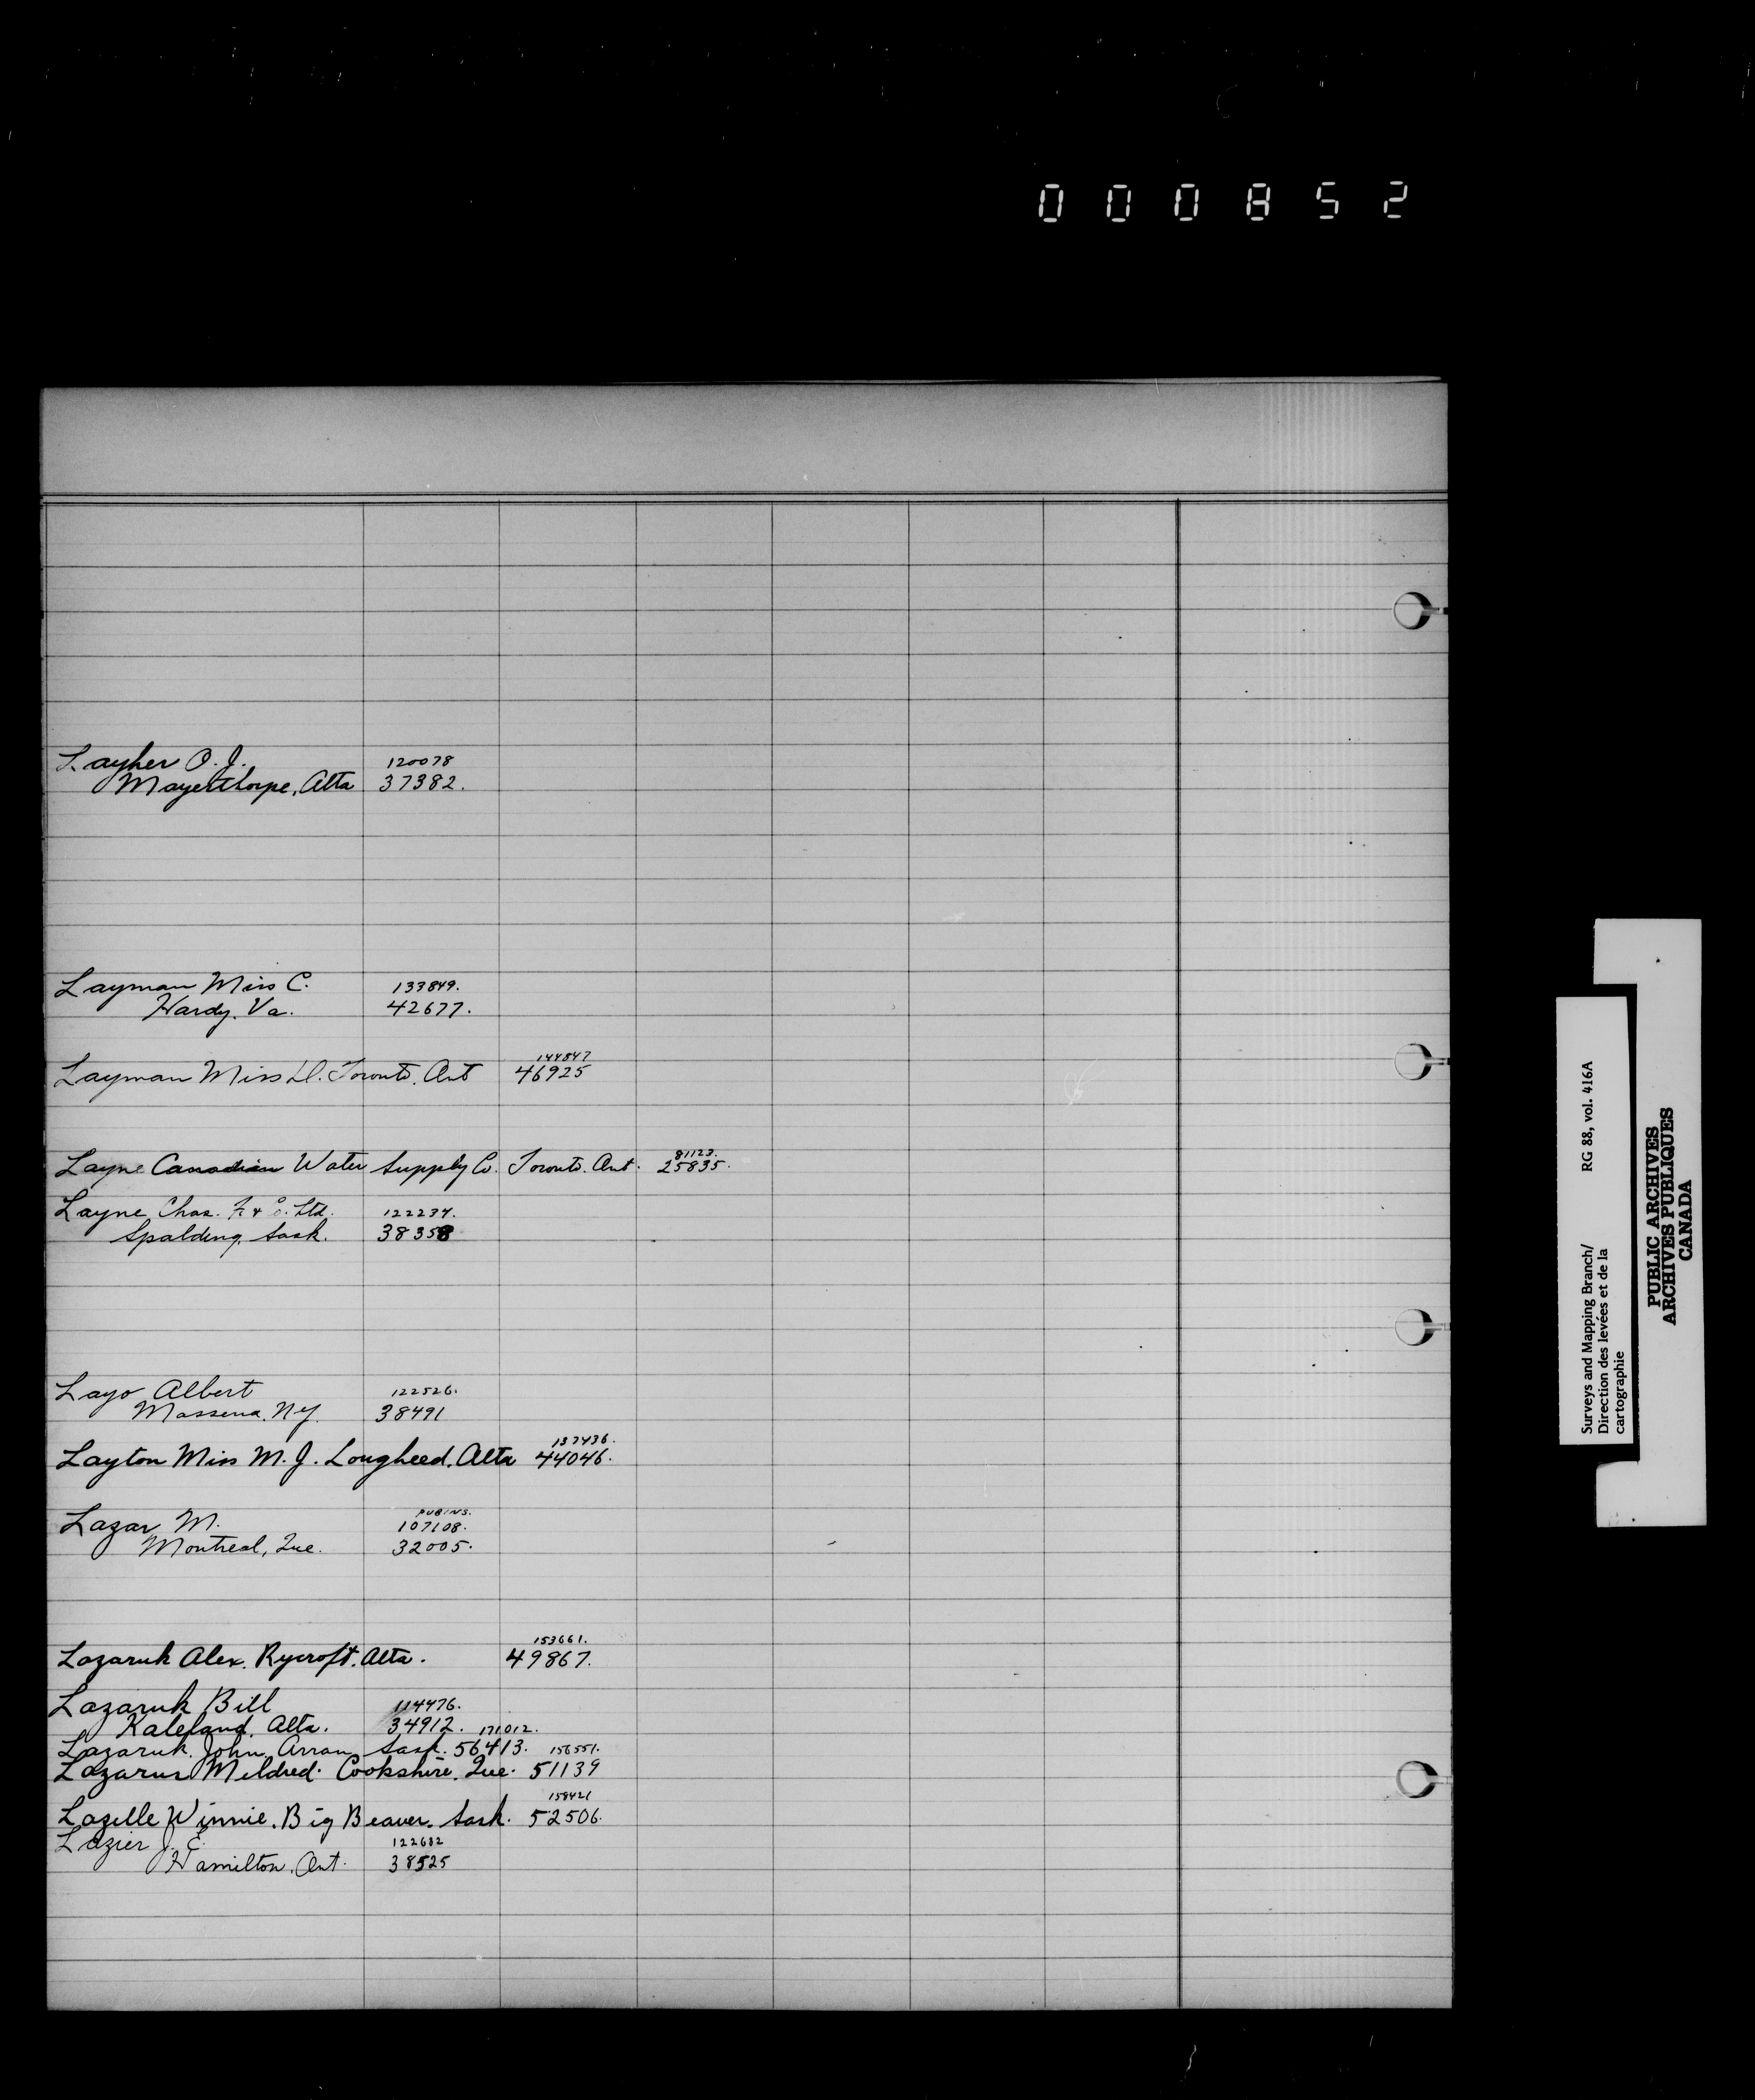 000852
Layher O. J. 120078
Mayerthorpe, Alta 37382.
Layman Miss C. 133849.
Hardy. Va. 42677.
144847
Layman Miss D. Toronto. Ont 46925
81123.
Layne Canadian Water Supply Co. Toronto. Ont. 25835.
Layne Chas. F. & C. Ltd. 122237.
Spalding. Sask. 38358
Layo Albert 122526.
Massena. N.Y. 38491
137436.
Layton Miss M. J. Lougheed. Alta 44046.
Lazar M. 107108.
Montreal, Que. 32005.
153661.
Lazaruk Alex. Rycroft. Alta. 49867.
Lazaruk Bill 114476.
Kaleland. Alta. 34912. 171012.
Lazaruk. John. Arran Sask. 56413. 156551.
Lazarus Mildred. Cookshire. Que. 51139
158421
Lazelle Winnie. Big Beaver. Sask. 52506.
Lazier J. E. 122632
Hamilton. Ont. 38525
Surveys and Mapping Branch/ RG 88, vol. 416A
Direction des levées et de la
cartographie
PUBLIC ARCHIVES
ARCHIVES PUBLIQUES
CANADA